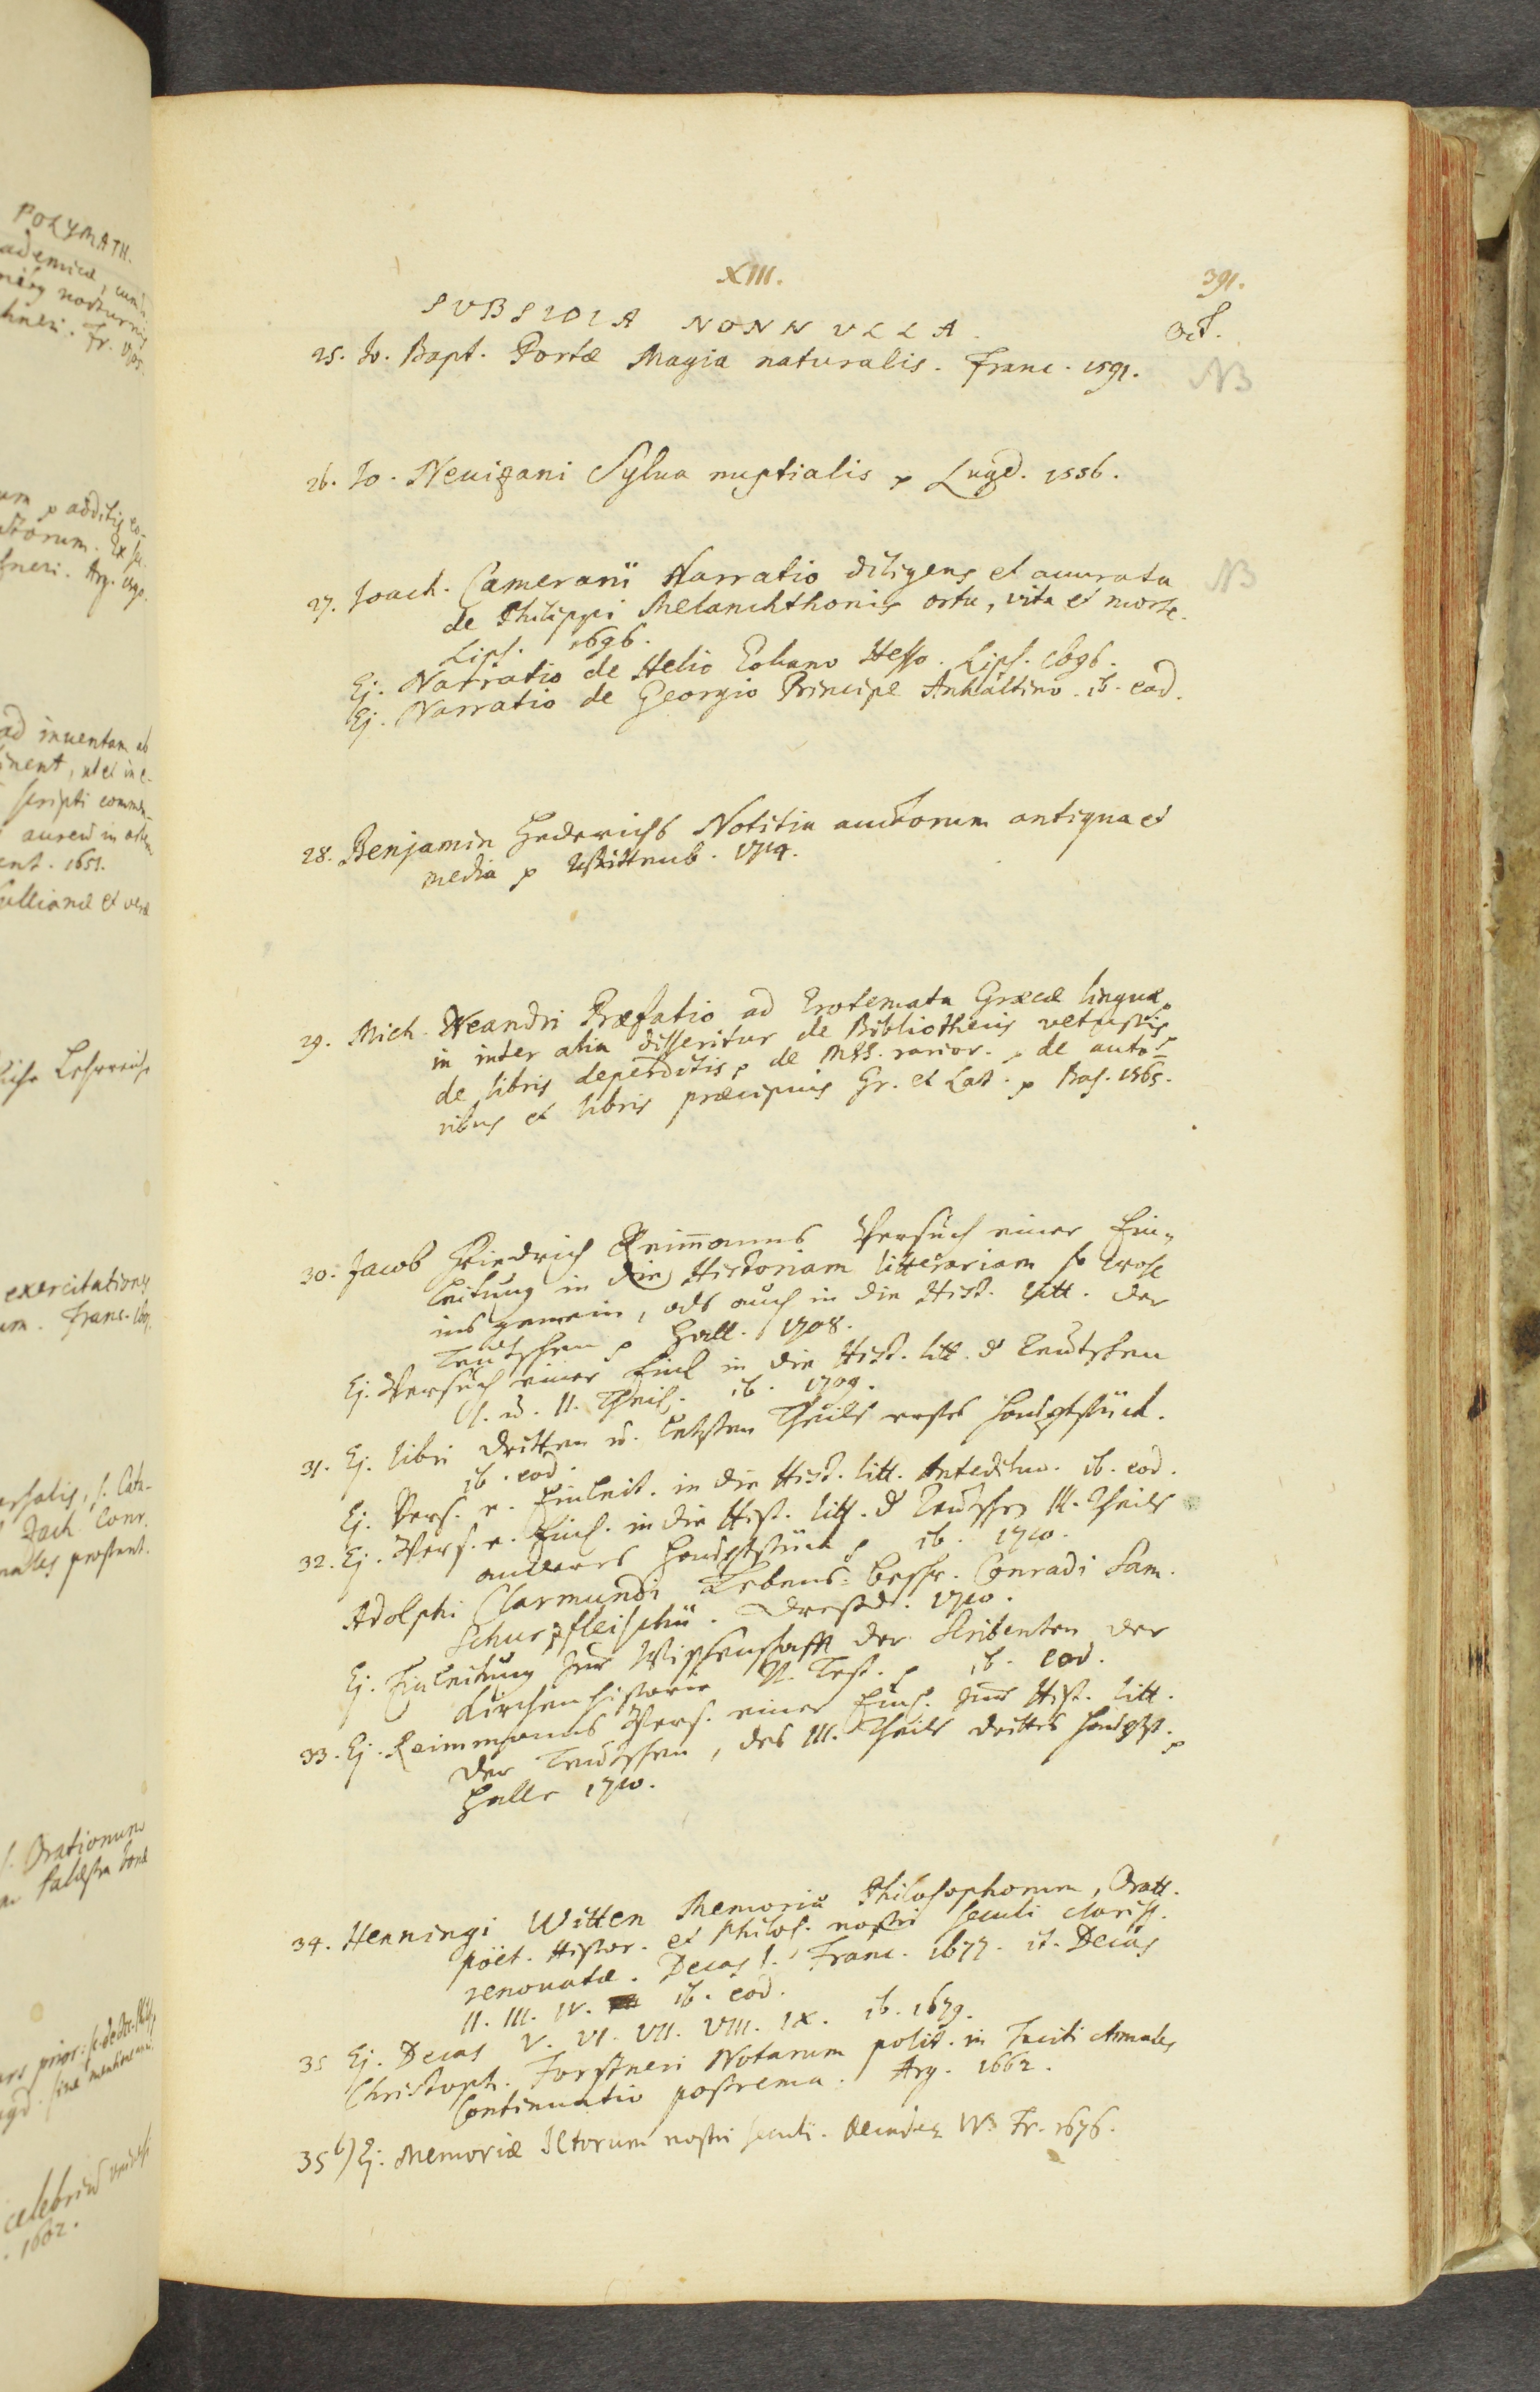 XIII.
391.
SUBSIDIA NONNULLA.
Oct.
25. Jo. Bapt. Portæ Magia naturalis. Franc. 1591.
NB
26. Jo. Neuizani Sylua nuptialis p Lugd. 1556.
27. Joach. Camerarii Narratio diligens et accurata
NB
de Philippi Melanchthonis ortu, vita et morte.
Lips. 1696.
Ej. Narratio de Helio Eobano Hesso. Lips. 1696.
Ej. Narratio de Georgio Principe Anhaltino. ib. eod.
28. Benjamin Hederichs Notitia auctorum antiqua et
media p Wittenb. 1714.
29. Mich. Neandri Præfatio ad Erotemata Græcæ linguæ,
in inter alia disseritur de Bibliothecis vetustis,
de libris deperditis, de MSS. rarior. p de auto-
ribus et libris præcipuis Gr. et Lat. p Bas. 1565.
30. Jacob Friedrich Reimanns Versuch einer Ein-
leitung in die Historiam litterariam so wohl
ins gemein, als auch in die Hist. litt. der
Teutschen p Hall. 1708.
Ej. Versuch einer Einl in die Hist. litt. d Teutschen
I. u. II. Theil. ib. 1709.
31. Ej. libri dritten u. letzten Theils erstes Hauptstück.
ib. eod.
Ej. Vers. e. Einleit. in die Hist. litt. Antediluv. ib. eod.
32. Ej. Vers. e. Einl. in die Hist. litt. d Teutschen III. Theils
anderes Hauptstück p ib. 1710.
Adolphi Clarmundi Lebens-beschr. Conradi Sam.
Schurzfleischii. Dressd. 1710.
Ej. Einleitung zur Wissenschafft der Scribenten der
Kirchenhistorie N. Test. p ib. eod.
33. Ej. Reimmanns Vers. einer Einl. zur Hist. litt.
der Teutschen, des III. Theils drittes Hauptst. p
Halle 1710.
34. Henningi Witten Memoriæ Philosophorum, Oratt.
Poët. Histor. et Philol. nostri seculi clariss.
renouatæ. Decas I. Franc. 1677. it. Decas
II. III. IV. ib. eod.
35 Ej. Decas V. VI. VII. VIII. IX. ib. 1679.
Christoph. Forstneri Notarum polit. in Taciti Annales
Continuatio postrema. Arg. 1662.
35 b) Ej. Memoriæ ICtorum nostri seculi. Fr. 1676.
POLYMATH.
1651.
exercitationes
Orationum
1602.